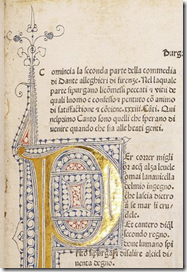 Purga
omincia la seconda parte della commedia
di Dante alleghieri di firenze. Nel laquale
parte sipurgano licōmessi peccati & vitii de
quali luomo e confesso & pentuto cō animo
di satisfactione & cōtiene.xxxiii.Cāti. Qui
nel primo Canto sono quelli che sperano di
uenire quando che sia alle beati genti.
Er correr migli
alza le
omai la nauicella
che lascia dietro
mar si crude
Et cantero di q̄l
secondo regno
humano spi
rito si purga